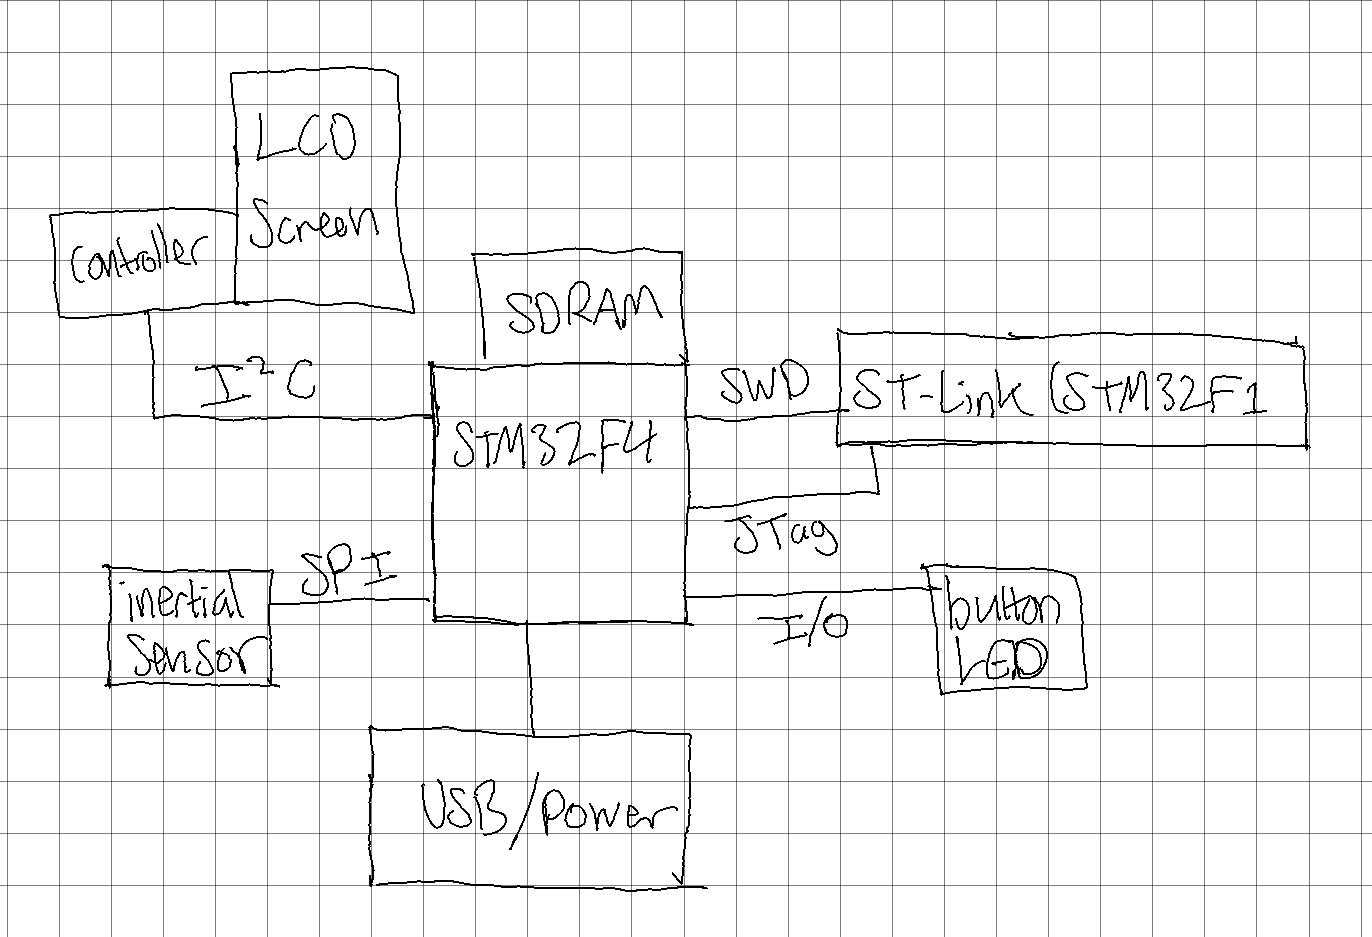 LCD
Screen
Controller
SDRAM
I²C
SWD
ST-Link (STM32F1
STM32F4
JTag
SPI
inertial
Sensor
I/O
button
LED
USB/Power